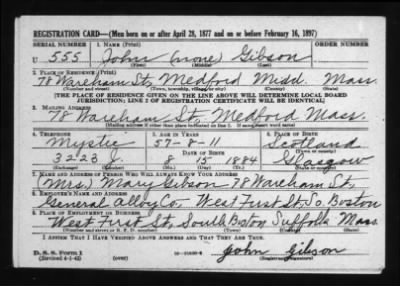 REGISTRATION CARD—(Men born on or after April 28, 1877 and on or before February 16, 1897)
SERIAL NUMBER 1. NAME (Print) ORDER NUMBER
U 555 John (none) Gibson
(First) (Middle) (Last)
2. PLACE OF RESIDENCE (Print)
78 Wareham St, Medford Midd. Mass.
(Number and street) (Town, township, village, or city) (County) (State)
[THE PLACE OF RESIDENCE GIVEN ON THE LINE ABOVE WILL DETERMINE LOCAL BOARD
JURISDICTION; LINE 2 OF REGISTRATION CERTIFICATE WILL BE IDENTICAL]
3. MAILING ADDRESS
78 Wareham St, Medford Mass.
[Mailing address if other than place indicated on line 2. If same insert word same]
4. TELEPHONE 5. AGE IN YEARS 6. PLACE OF BIRTH
Mystic 57-8-11 Scotland
DATE OF BIRTH
3223 8 15 1884 Glasgow
(Exchange) (Number) (Mo.) (Day) (Yr.) (State or country)
7. NAME AND ADDRESS OF PERSON WHO WILL ALWAYS KNOW YOUR ADDRESS
Mrs. Mary Gibson 78 Wareham St,
8. EMPLOYER'S NAME AND ADDRESS
General Alloy Co. West First St, So. Boston
9. PLACE OF EMPLOYMENT OR BUSINESS
West First St, South Boston Suffolk Mass.
(Number and street or R. F. D. number) (Town) (County) (State)
I AFFIRM THAT I HAVE VERIFIED ABOVE ANSWERS AND THAT THEY ARE TRUE.
D. S. S. Form 1
(Revised 4-1-42) (over) John Gibson
(Registrant's signature)